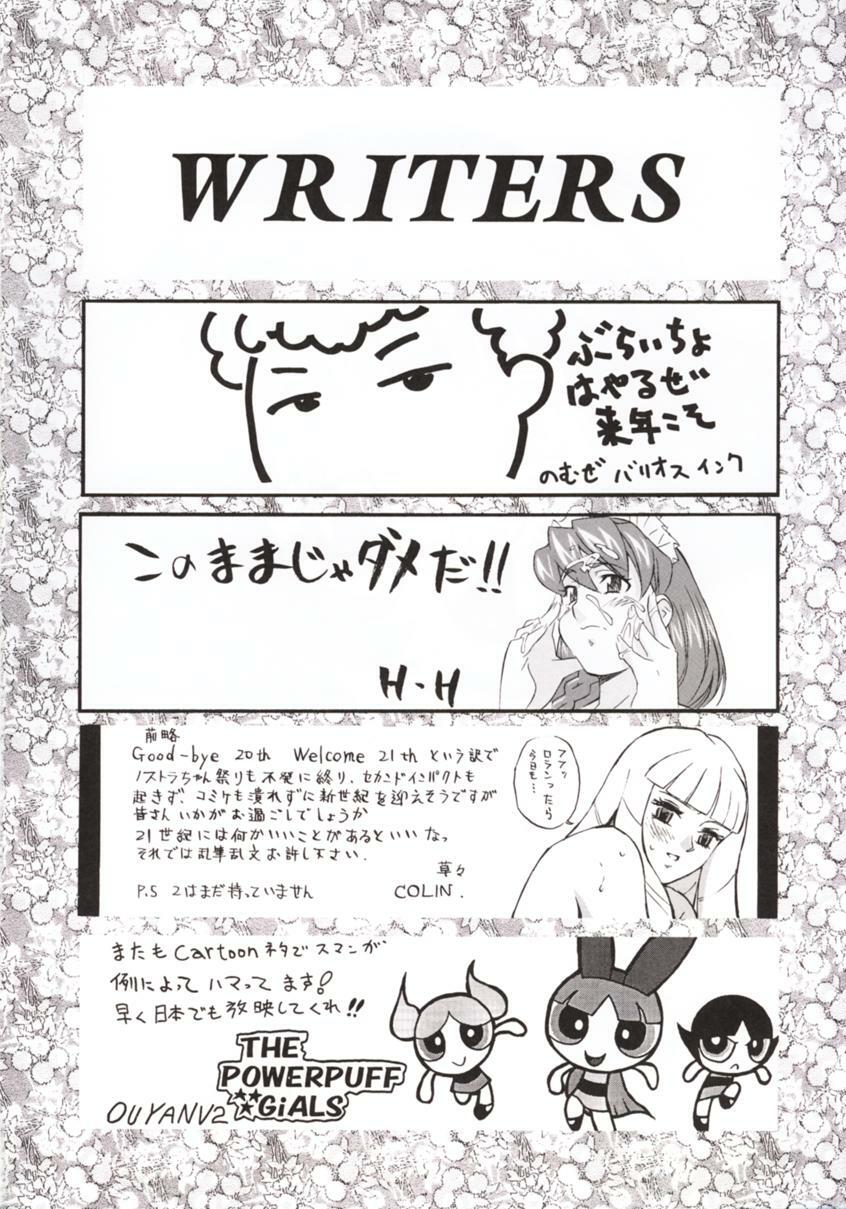 WRITERS
ぶらいちょ
はやるぜ
来年こそ
のむぜ バリオス インク
このままじゃダメだ!!
H・H
前略
Good-bye 20th Welcome 21th という訳で
ノストラちゃん祭りも不発に終り、セカンドインパクトも
起きず、コミケも潰れずに新世紀を迎えそうですが
皆さんいかがお過ごしでしょうか
21世紀には何かいいことがあるといいなっ
それでは乱筆乱文お許し下さい.
草々
P.S 2はまだ持っていません
COLIN.
アアッ
ロランったら
今日も…
またもCartoonネタでスマンが
例によってハマってます!
早く日本でも放映してくれ!!
THE
POWERPUFF
GiALS
OUYANV2